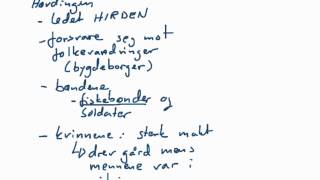 Høvdingen
- ledet HIRDEN
- forsvare seg mot
folkevandringer
(bygdeborger)
- bøndene
- fiskebønder og
soldater
- kvinnene: sterk makt
↳ drev gård mens
mennene var i